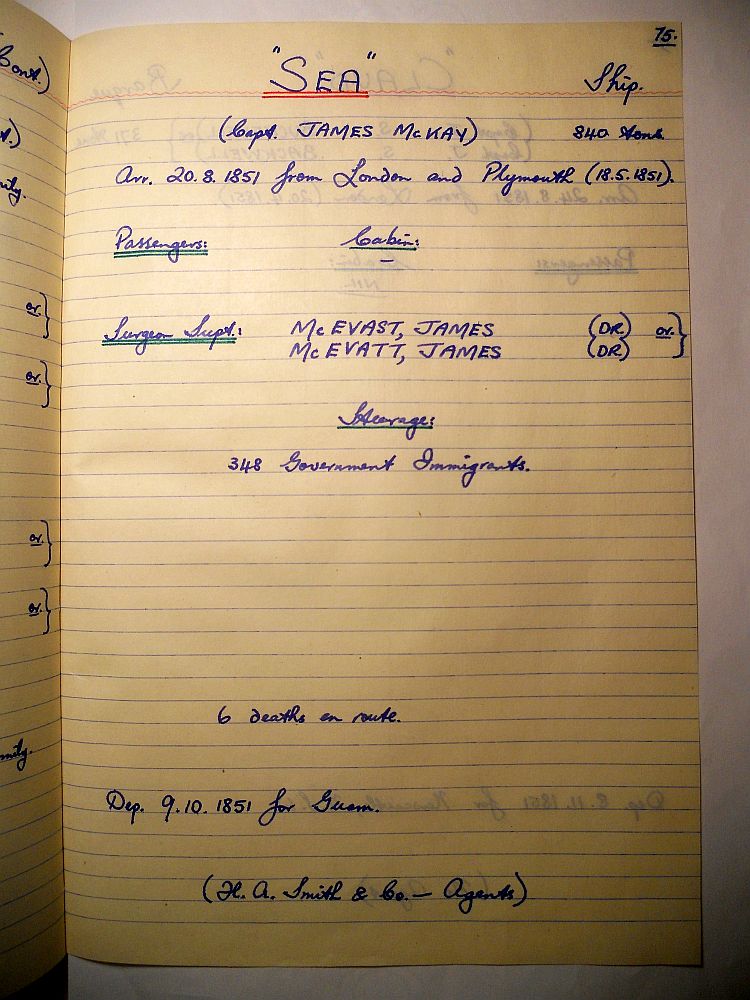 75.
"SEA" Ship.
(Capt. JAMES McKAY) 840 tons.
Arr. 20.8.1851 from London and Plymouth (18.5.1851).
Passengers: Cabin:
—
Surgeon Supt.: McEVAST, JAMES (DR.) or.}
McEVATT, JAMES (DR)
Steerage:
348 Government Immigrants.
6 deaths en route.
Dep. 9.10.1851 for Guam.
(H. A. Smith & Co. — Agents)
Cont.)
or.}
or.}
or.}
or.}